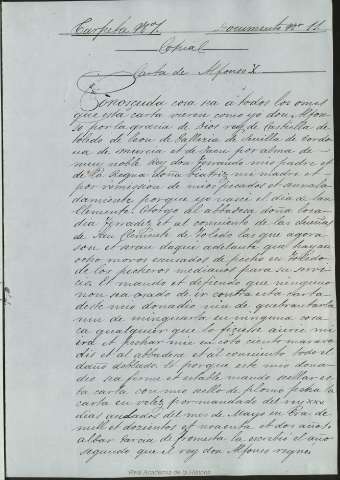 Carpeta Nº 7. Documento Nº 11.
Copia
Carta de Alfonso X
Conoscuda cosa sea á todos los omes
que esta carta vieren como yo don Alfon-
so por la gracia de Dios rey de Castiella de
toledo de leon de Gallicia de Sevilla de Cordo-
va de murcia et de Jaen por alma de
muy noble Rey don Ferrando mio padre et
de la Regna doña beatriz mi madre et
por remission de mios pecados et annala-
damiente porque yo naci el dia de San
Clemente Otorgo al abbadesa doña
et al conviento de las dueñas
de San Clemente de Toledo las que agora
son et seran daqui adelante que hayan
ocho moros escusados de pecho en toledo
de los pecheros medianos para su servi-
cio Et mando et defiendo que ninguno
non sea osado de ir contra esta carta
deste mio donadio nin de quebrantarla
nin de minguarla en ninguna cosa
ca qualquier que lo ficiese aurie mi
ira et pecharmie en coto cient marave-
dis et al abbadesa et al conviento todo el
daño doblado. Et porque este mio dona-
dio sea firme et estable mando seellar es-
ta carta con mio seello de plomo fecha la
carta en por mandado del rey xxx
dias andados del mes de Mayo en Era de
mill et docientos et noventa et dos años
albar garcia de fromesta la escribió el año
segundo que el rey don Alfonso regno
Real Academia de la Historia